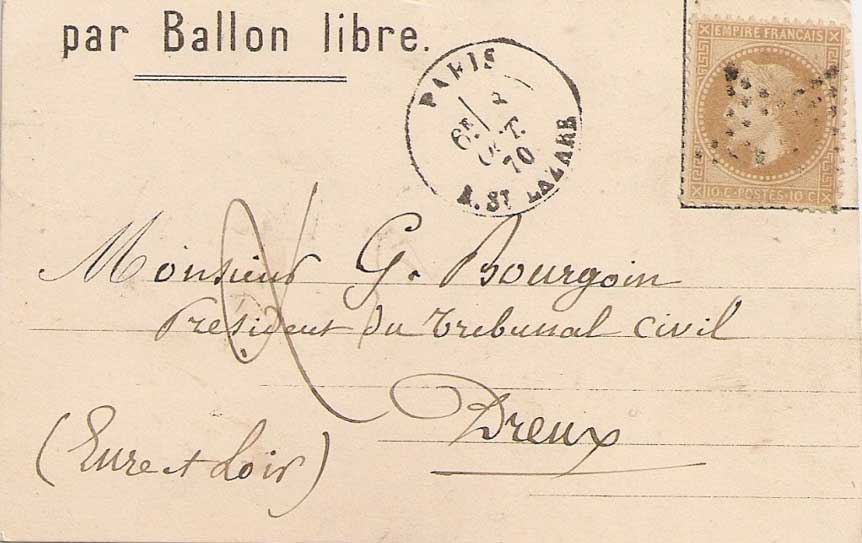 par Ballon libre.
PARIS
6E
OCT.
70
R. ST LAZARE
EMPIRE FRANCAIS
10 C. POSTES 10 C.
Monsieur G. Bourgoin
President du Tribunal Civil
Dreux
(Eure et Loir)